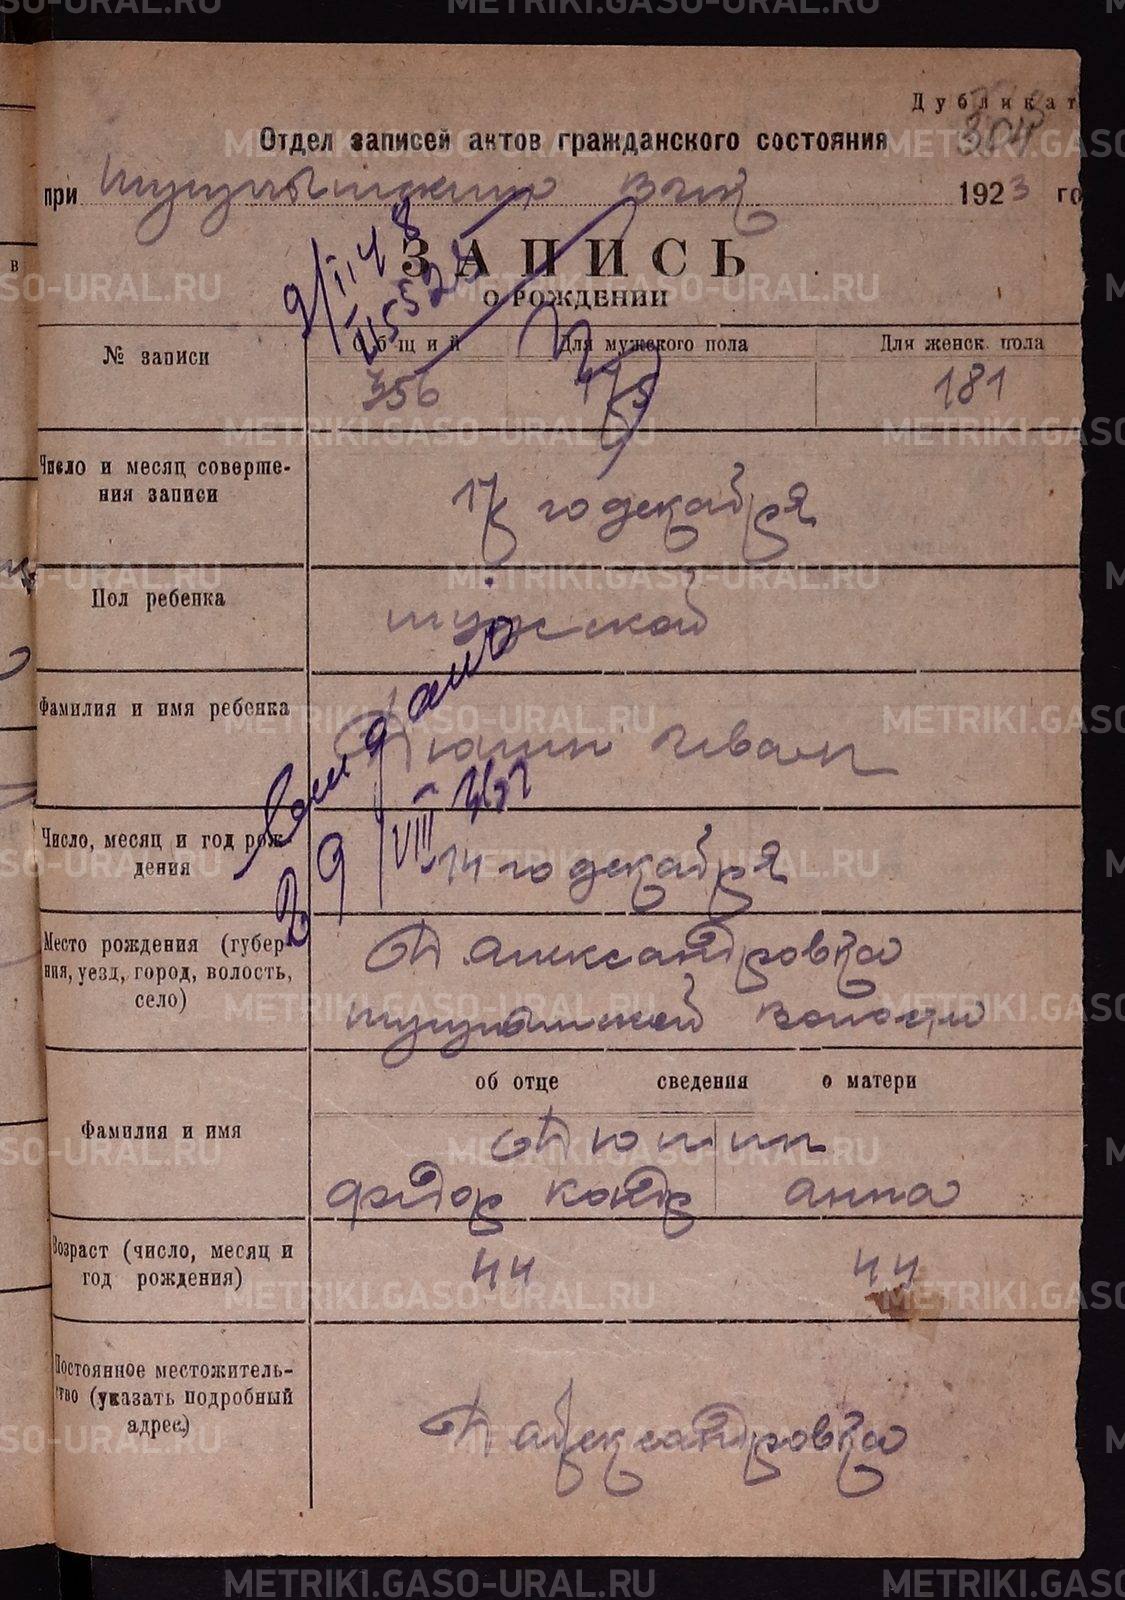 Дубликат
304
Отдел записей актов гражданского состояния
при вик 1923 го
ЗАПИСЬ
О РОЖДЕНИИ
№ записи
Общий
Для мужского пола
Для женск. пола
356
175
181
Число и месяц соверше-
ния записи
17 го декабря
Пол ребенка
мужской
Фамилия и имя ребенка
Тюнин Иван
Число, месяц и год рож-
дения
14 го декабря
Место рождения (губер-
ния, уезд, город, волость,
село)
Д Александровка
волости
об отце сведения о матери
Фамилия и имя
Тюнин
Федор Кондр Анна
Возраст (число, месяц и
год рождения)
44 44
Постоянное местожитель-
ство (указать подробный
адрес.)
Д Александровка
METRIKI.GASO-URAL.RU